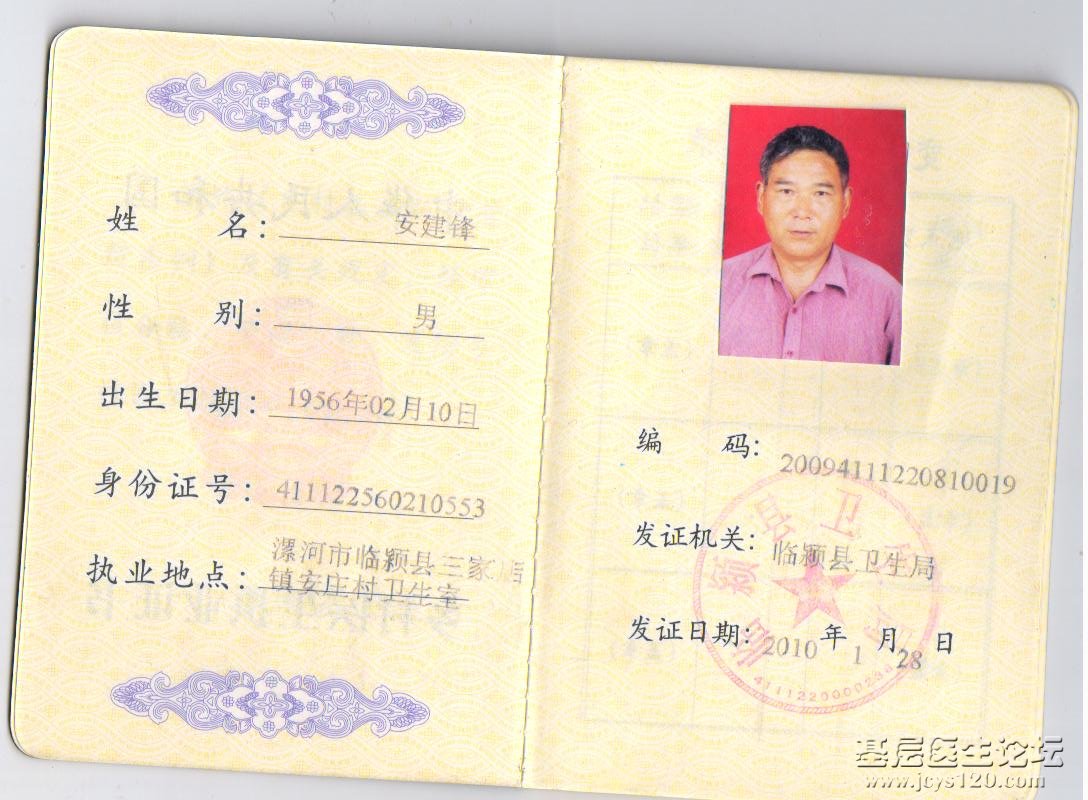 姓 名：安建锋
性 别：男
出生日期：1956年02月10日
身份证号：411122560210553
执业地点：漯河市临颍县三家店
镇安庄村卫生室
编 码：20094111220810019
发证机关：临颍县卫生局
发证日期：2010年1月28日
基层医生论坛
www.jcys120.com